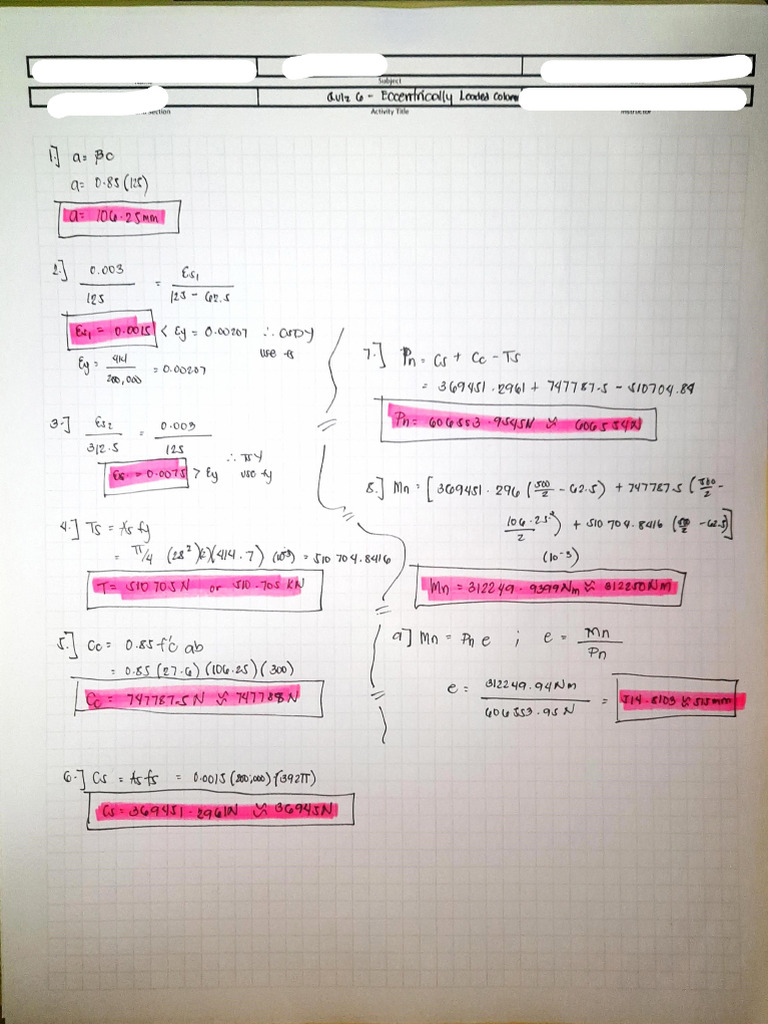 Subject
Quiz 6 - Eccentrically Loaded Column
Section
Activity Title
Instructor
1.] a = βc
a = 0.85 (125)
a = 106.25mm
2.] 0.003 / 125 = Es1 / 125 - 62.5
Es1 = 0.0015 < Ey = 0.00207 ∴ CSDY
use fs
Ey = 414 / 200,000 = 0.00207
3.] Es2 / 312.5 = 0.003 / 125
∴ TSY
Es = 0.0075 > Ey use fy
4.] Ts = As fy
= π/4 (28²)(2)(414.7) (10⁻³) = 510 704.8416
T = 510 705 N or 510.705 KN
5.] Cc = 0.85 f'c ab
= 0.85 (27.6) (106.25) (300)
Cc = 747787.5 N ≈ 747788 N
6.] Cs = As fs = 0.0015 (200,000) (392π)
Cs = 369451.2961N ≈ 36945N
7.] Pn = Cs + Cc - Ts
= 369451.2961 + 747787.5 - 510704.84
Pn = 606553.9545N ≈ 606554N
8.] Mn = [369451.296 (500/2 - 62.5) + 747787.5 (500/2 -
106.25/2) + 510 704.8416 (500/2 - 62.5)]
(10⁻³)
Mn = 312249.9399Nm ≈ 312250Nm
9] Mn = Pn e ; e = Mn / Pn
e = 312249.94Nm / 606553.95 N = 514.8103 ≈ 515mm